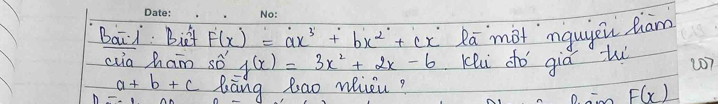 Date: No:
Bài 1 : Biết F(x) = ax³ + bx² + cx là một nguyên hàm
của hàm số f(x) = 3x² + 2x - 6. Khi đó giá trị
a + b + c bằng bao nhiêu ?
F(x)